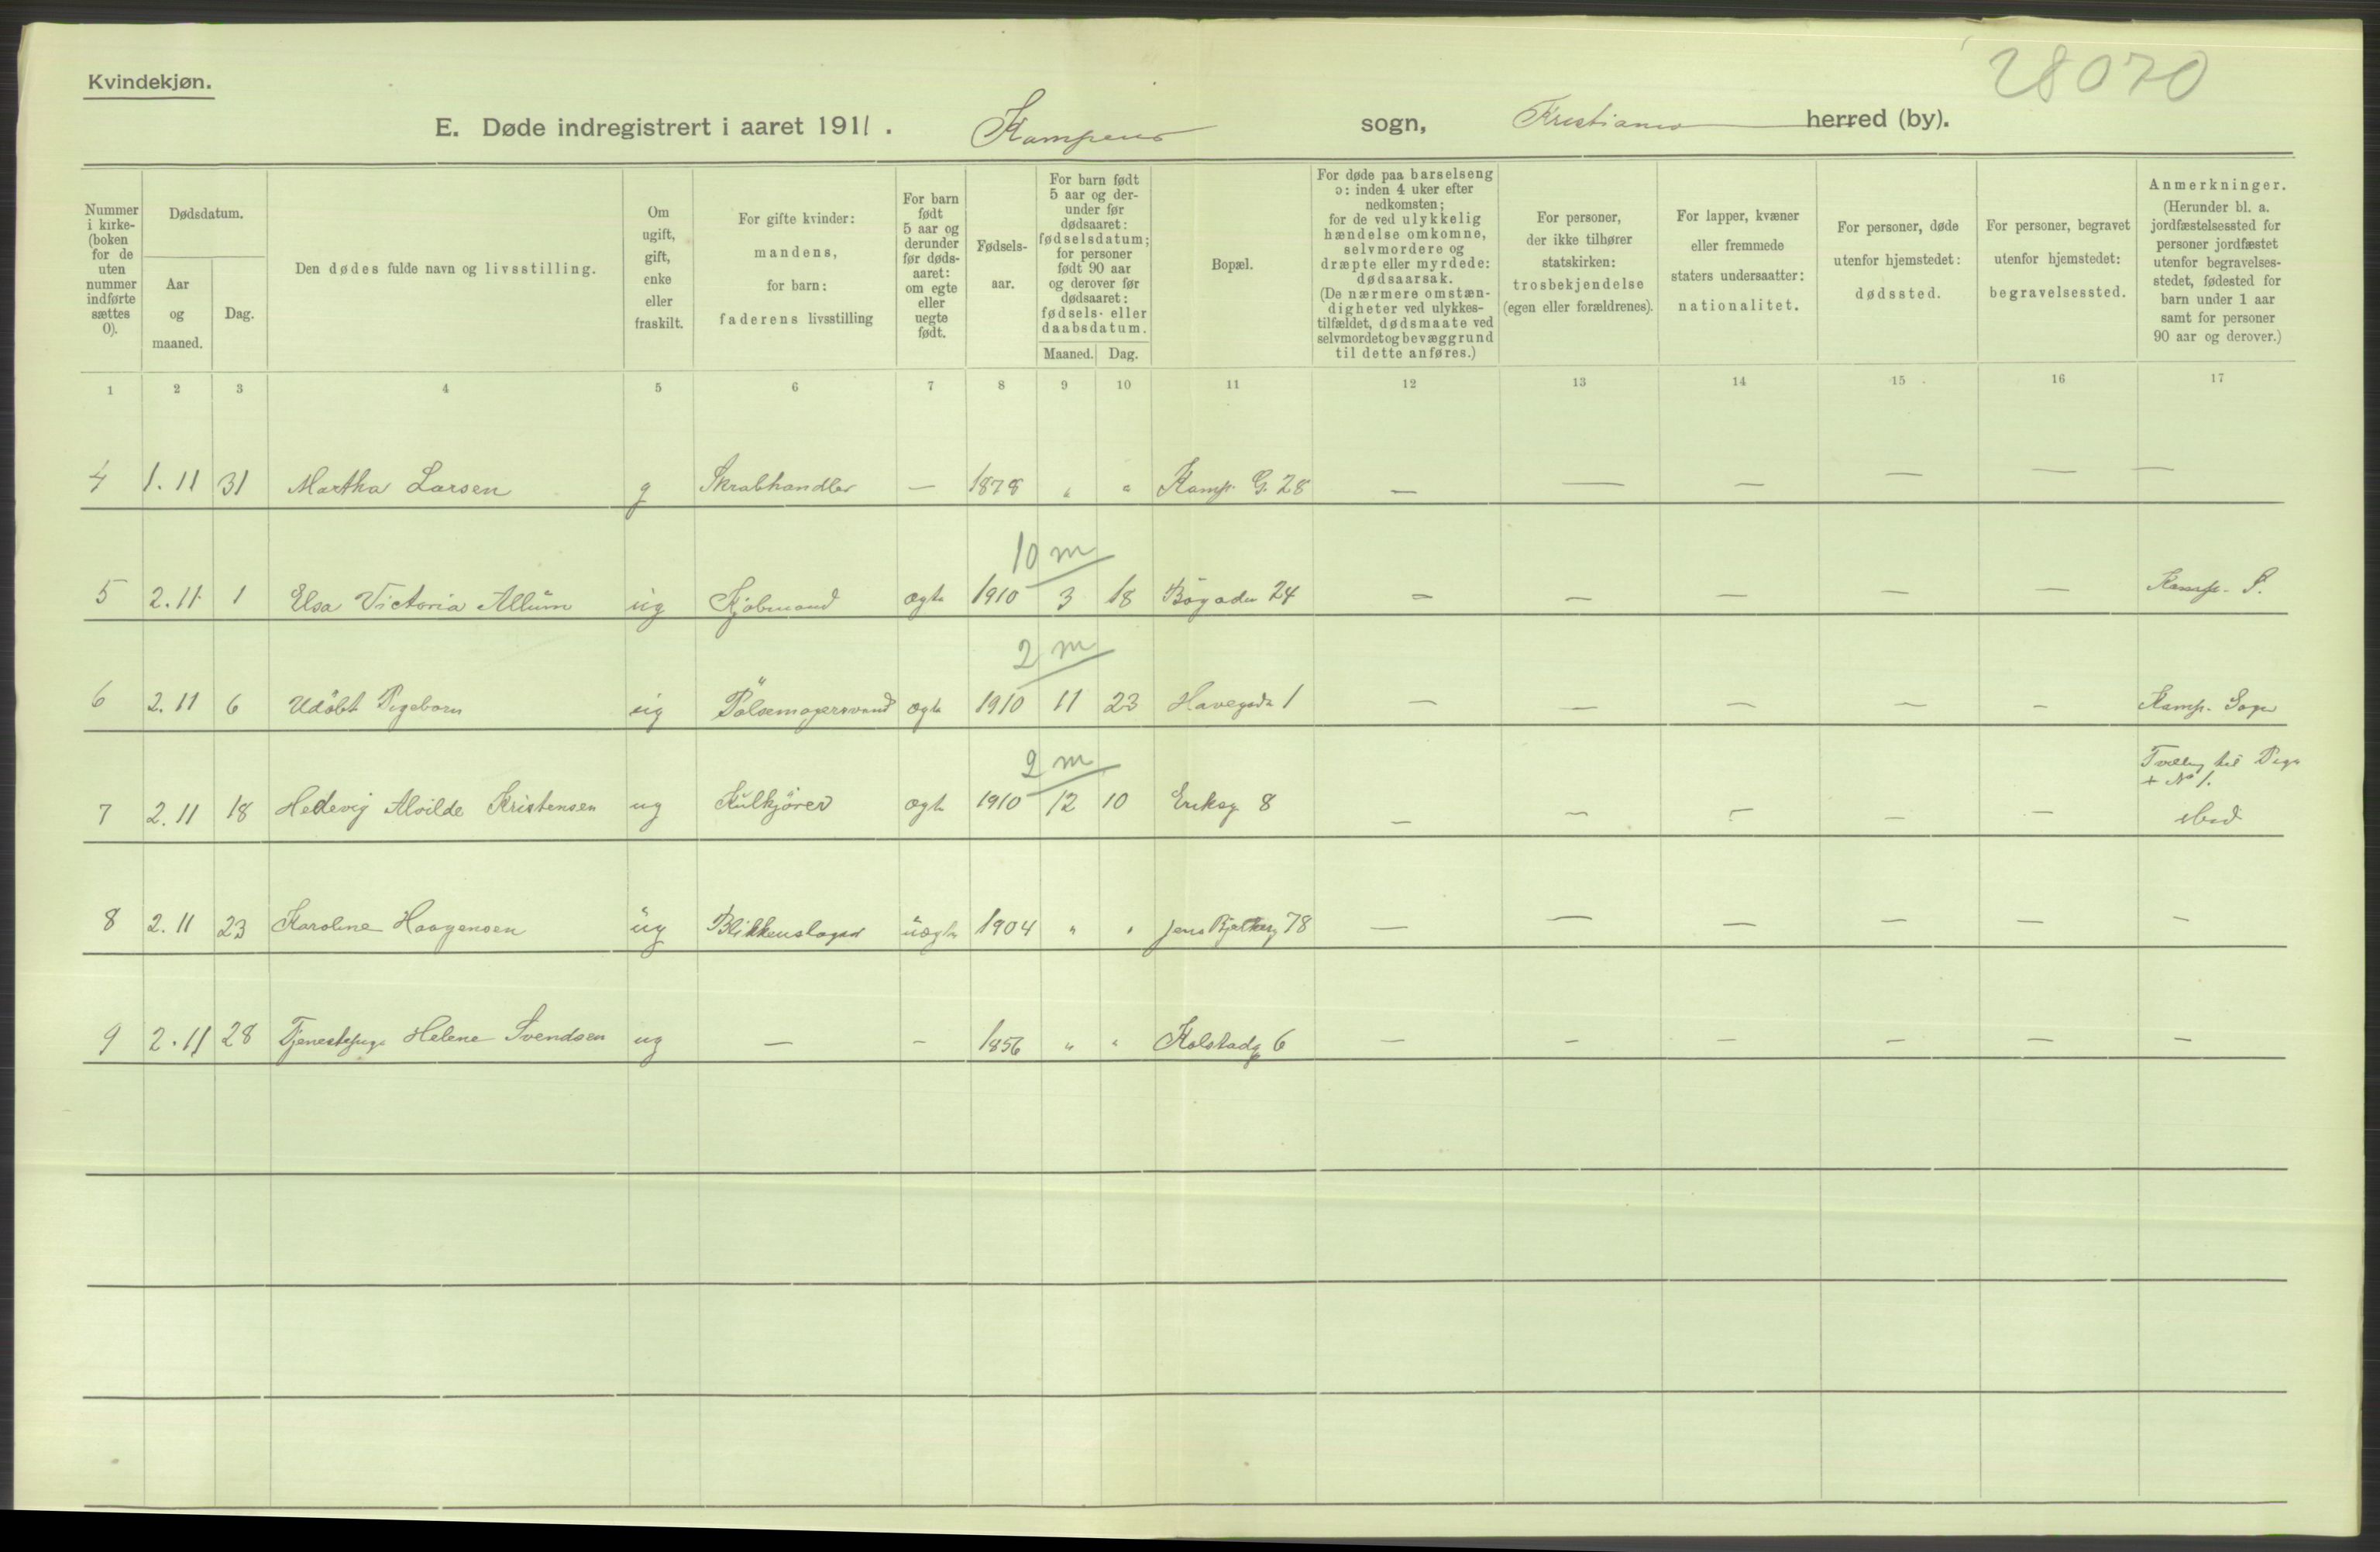 Kvindekjøn.
28070
E. Døde indregistrert i aaret 1911. Kampens sogn, Kristiania herred (by).
Nummer i kirke- (boken for de uten nummer indførte sættes 0).
Dødsdatum.
Aar og maaned.
Dag.
Den dødes fulde navn og livsstilling.
Om ugift, gift, enke eller fraskilt.
For gifte kvinder: mandens, for barn: faderens livsstilling
For barn født 5 aar og derunder før døds- aaret: om egte eller uegte født.
Fødsels- aar.
For barn født 5 aar og der- under før dødsaaret: fødselsdatum; for personer født 90 aar og derover før dødsaaret: fødsels- eller daabsdatum.
Maaned. Dag.
Bopæl.
For døde paa barselseng ɔ: inden 4 uker efter nedkomsten; for de ved ulykkelig hændelse omkomne, selvmordere og dræpte eller myrdede: dødsaarsak. (De nærmere omstæn- digheter ved ulykkes- tilfældet, dødsmaate ved selvmordet og bevæggrund til dette anføres.)
For personer, der ikke tilhører statskirken: trosbekjendelse (egen eller forældrenes).
For lapper, kvæner eller fremmede staters undersaatter: nationalitet.
For personer, døde utenfor hjemstedet: dødssted.
For personer, begravet utenfor hjemstedet: begravelsessted.
Anmerkninger. (Herunder bl. a. jordfæstelsessted for personer jordfæstet utenfor begravelses- stedet, fødested for barn under 1 aar samt for personer 90 aar og derover.)
1 2 3 4 5 6 7 8 9 10 11 12 13 14 15 16 17
4 1.11 31 Martha Larsen g Skrabhandler — 1878 " " Kamp. G. 28 — — — — — —
10 m
5 2.11 1 Elsa Victoria Allum ug Kjøbmand ægte 1910 3 18 Bøgaden 24 — — — — — Kamp. S.
2 m
6 2.11 6 Udøbt Pigebarn ug Pølsemagersvend ægte 1910 11 23 Havegada 1 — — — — — Kamp. Sogn
2 m
Tvilling til Pige
+ No 1.
7 2.11 18 Hedevig Alvilde Kristensen ug Kulkjører ægte 1910 12 10 Eriksg 8 — — — — — ibid
8 2.11 23 Karoline Haagensen ug Blikkenslager uægte 1904 " " Jens Bjelkesg 78 — — — — — —
9 2.11 28 Tjenestepige Helene Svendsen ug — — 1856 " " Kolstadg 6 — — — — — —